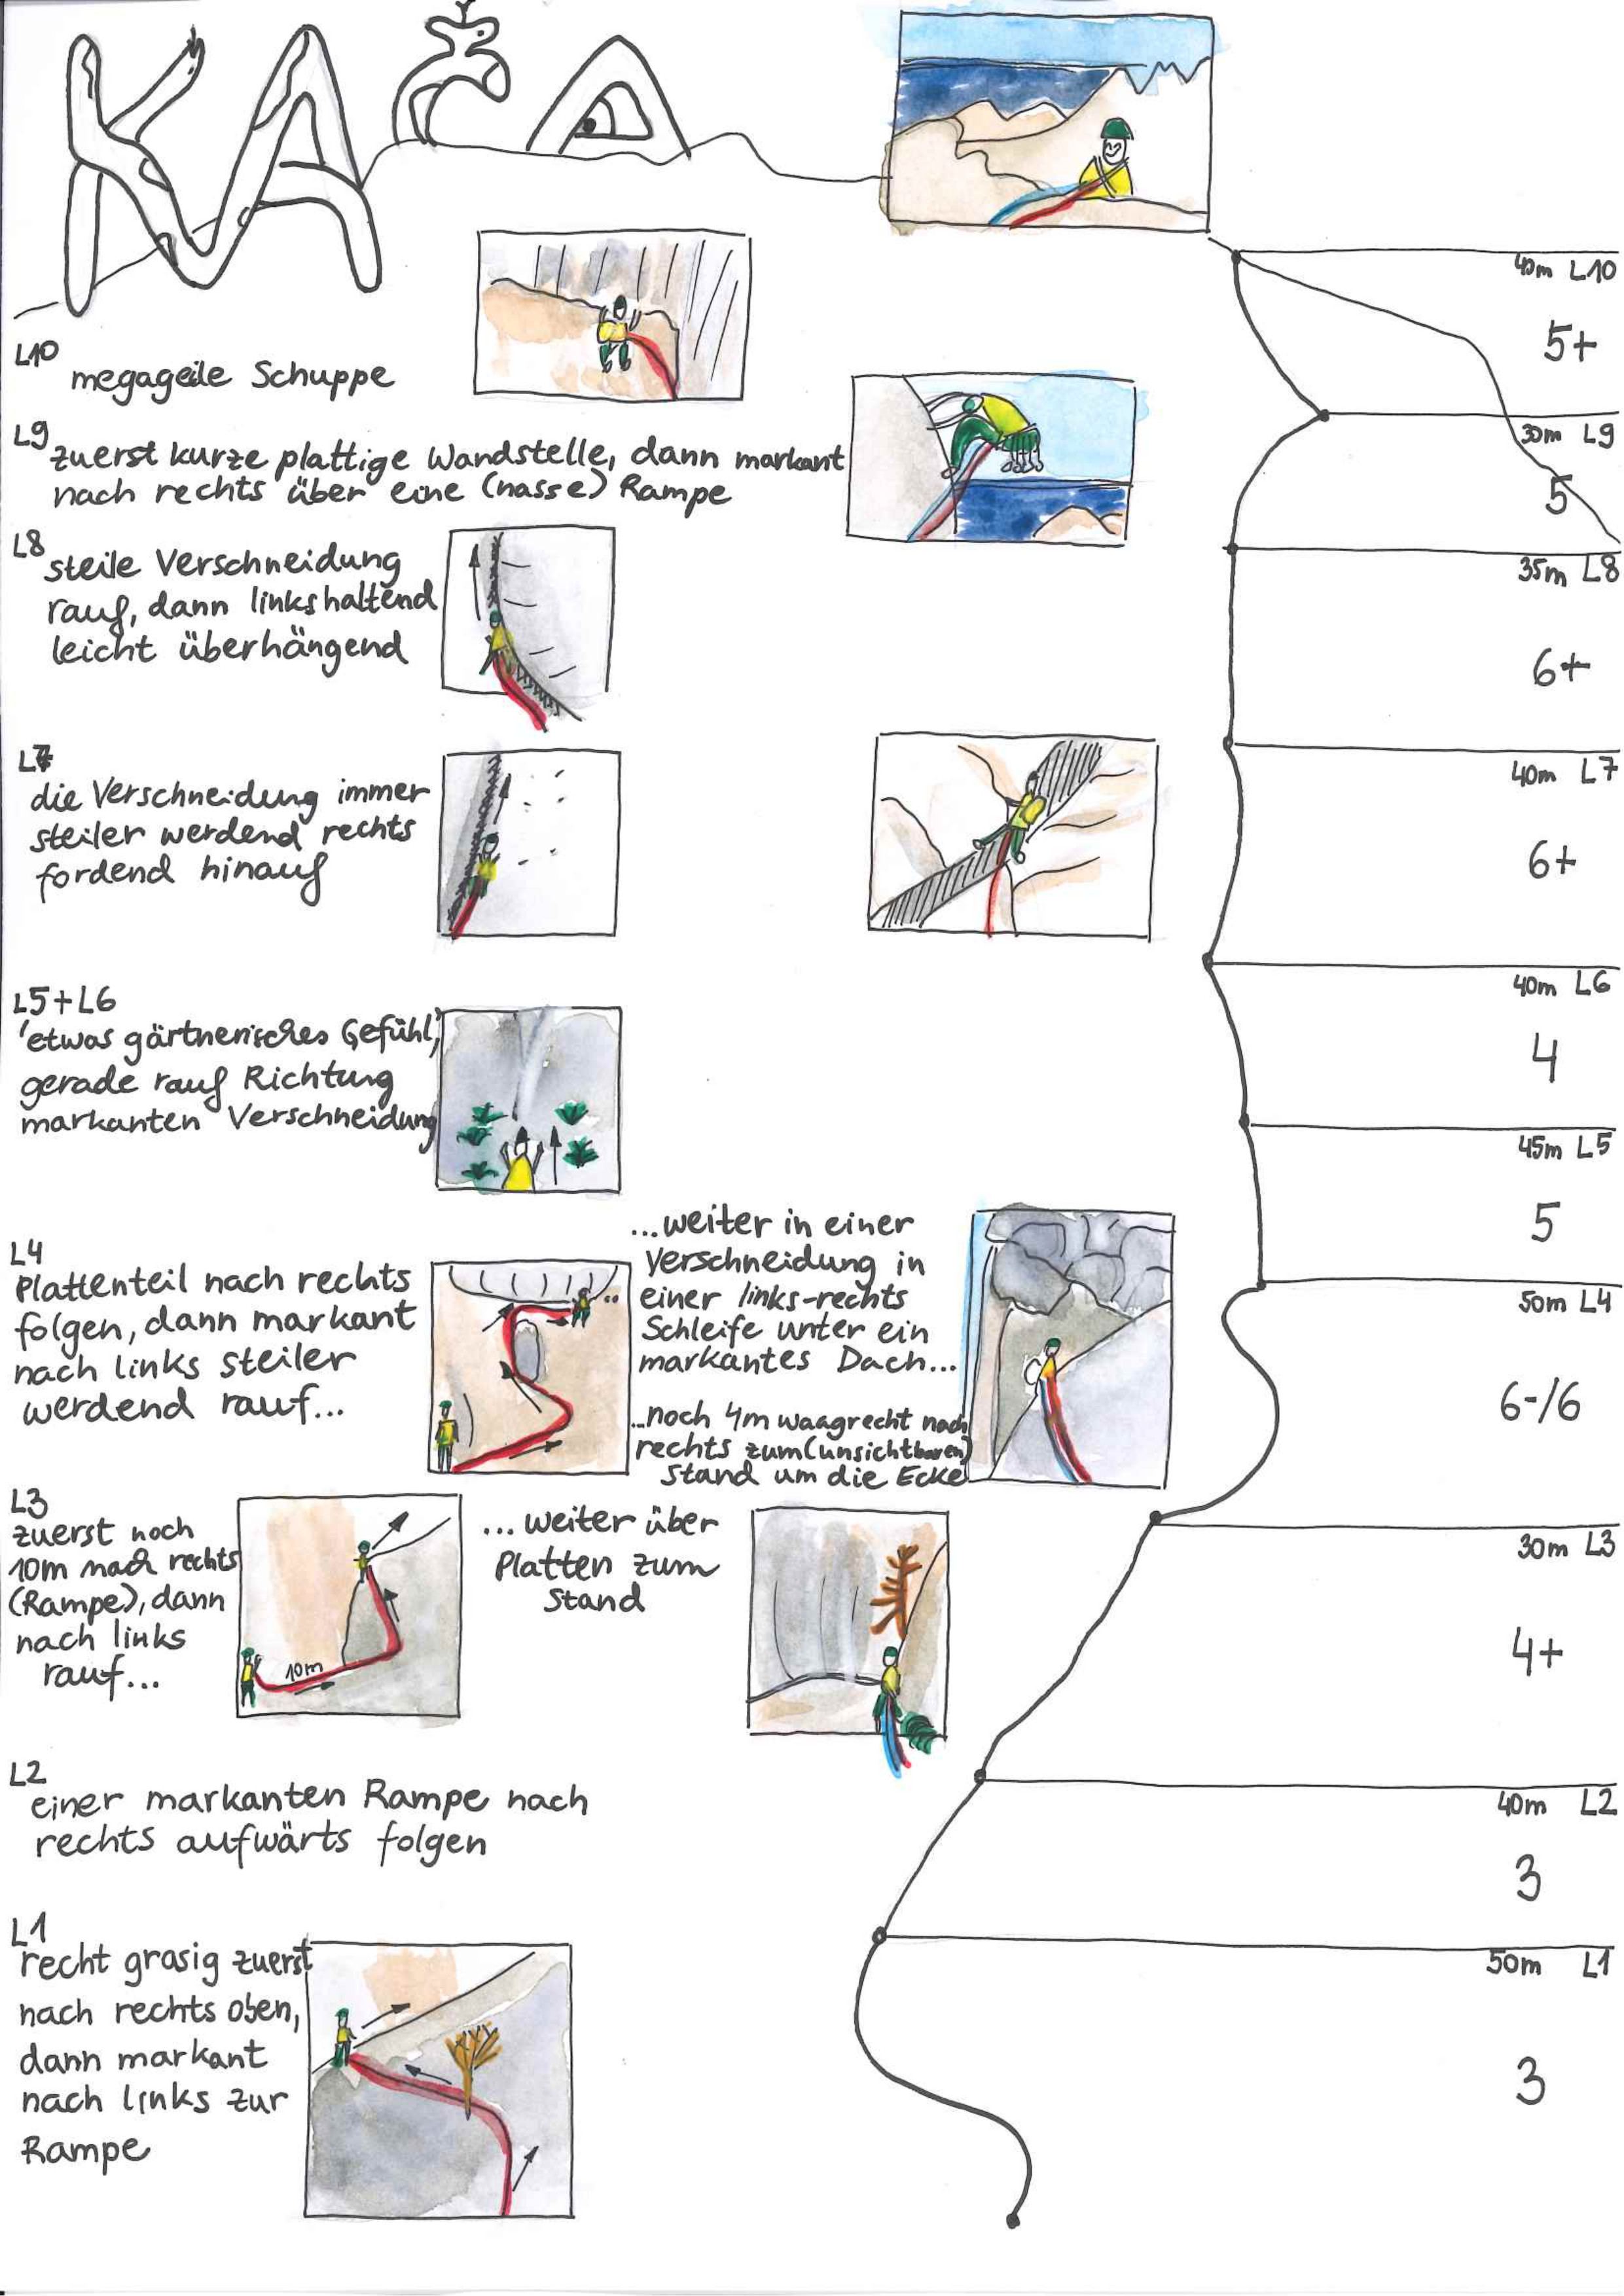 KAČA
40m L10
5+
L10
megageile Schuppe
30m L9
5
L9
zuerst kurze plattige Wandstelle, dann markant
nach rechts über eine (nasse) Rampe
35m L8
6+
L8
steile Verschneidung
rauf, dann linkshaltend
leicht überhängend
40m L7
6+
L7
die Verschneidung immer
steiler werdend rechts
fordend hinauf
40m L6
4
L5+L6
'etwas gärtnerisches Gefühl,'
gerade rauf Richtung
markanten Verschneidung
45m L5
5
50m L4
6-/6
L4
Plattenteil nach rechts
folgen, dann markant
nach links steiler
werdend rauf...
...weiter in einer
Verschneidung in
einer links-rechts
Schleife unter ein
markantes Dach...
...noch 4m waagrecht nach
rechts zum (unsichtbaren)
Stand um die Ecke
30m L3
4+
L3
zuerst noch
10m nach rechts
(Rampe), dann
nach links
rauf...
10m
... weiter über
Platten zum
Stand
40m L2
3
L2
einer markanten Rampe nach
rechts aufwärts folgen
50m L1
3
L1
recht grasig zuerst
nach rechts oben,
dann markant
nach links zur
Rampe